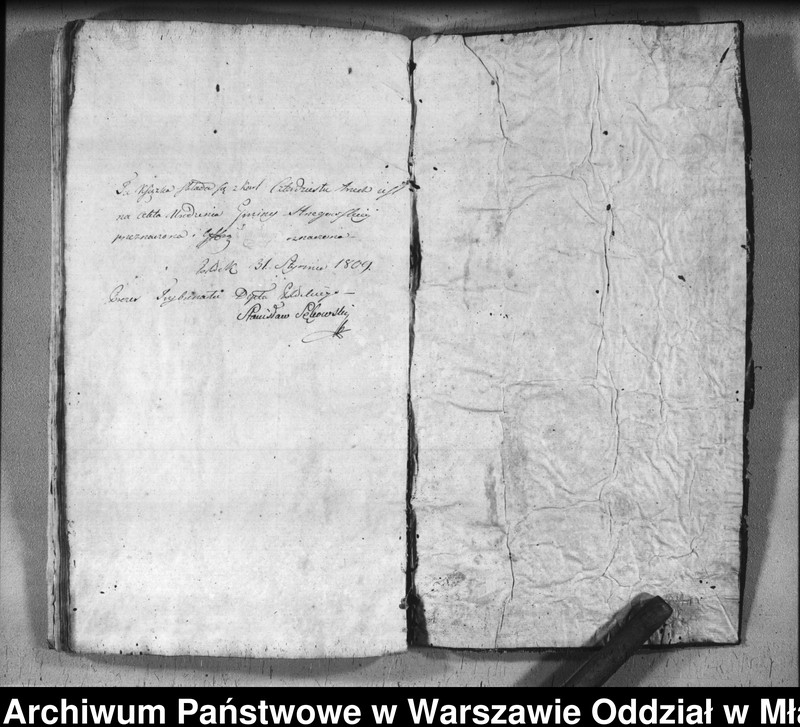 Ta Xięzka składa się z kart Czterdziestu trzech i jest
na Akta Urodzenia Gminy Strzegowskiey
przeznaczona i oznaczona
31. Stycznia 1809.
Prezes Trybunału Dptu
Stanisław
Archiwum Państwowe w Warszawie Oddział w Mł